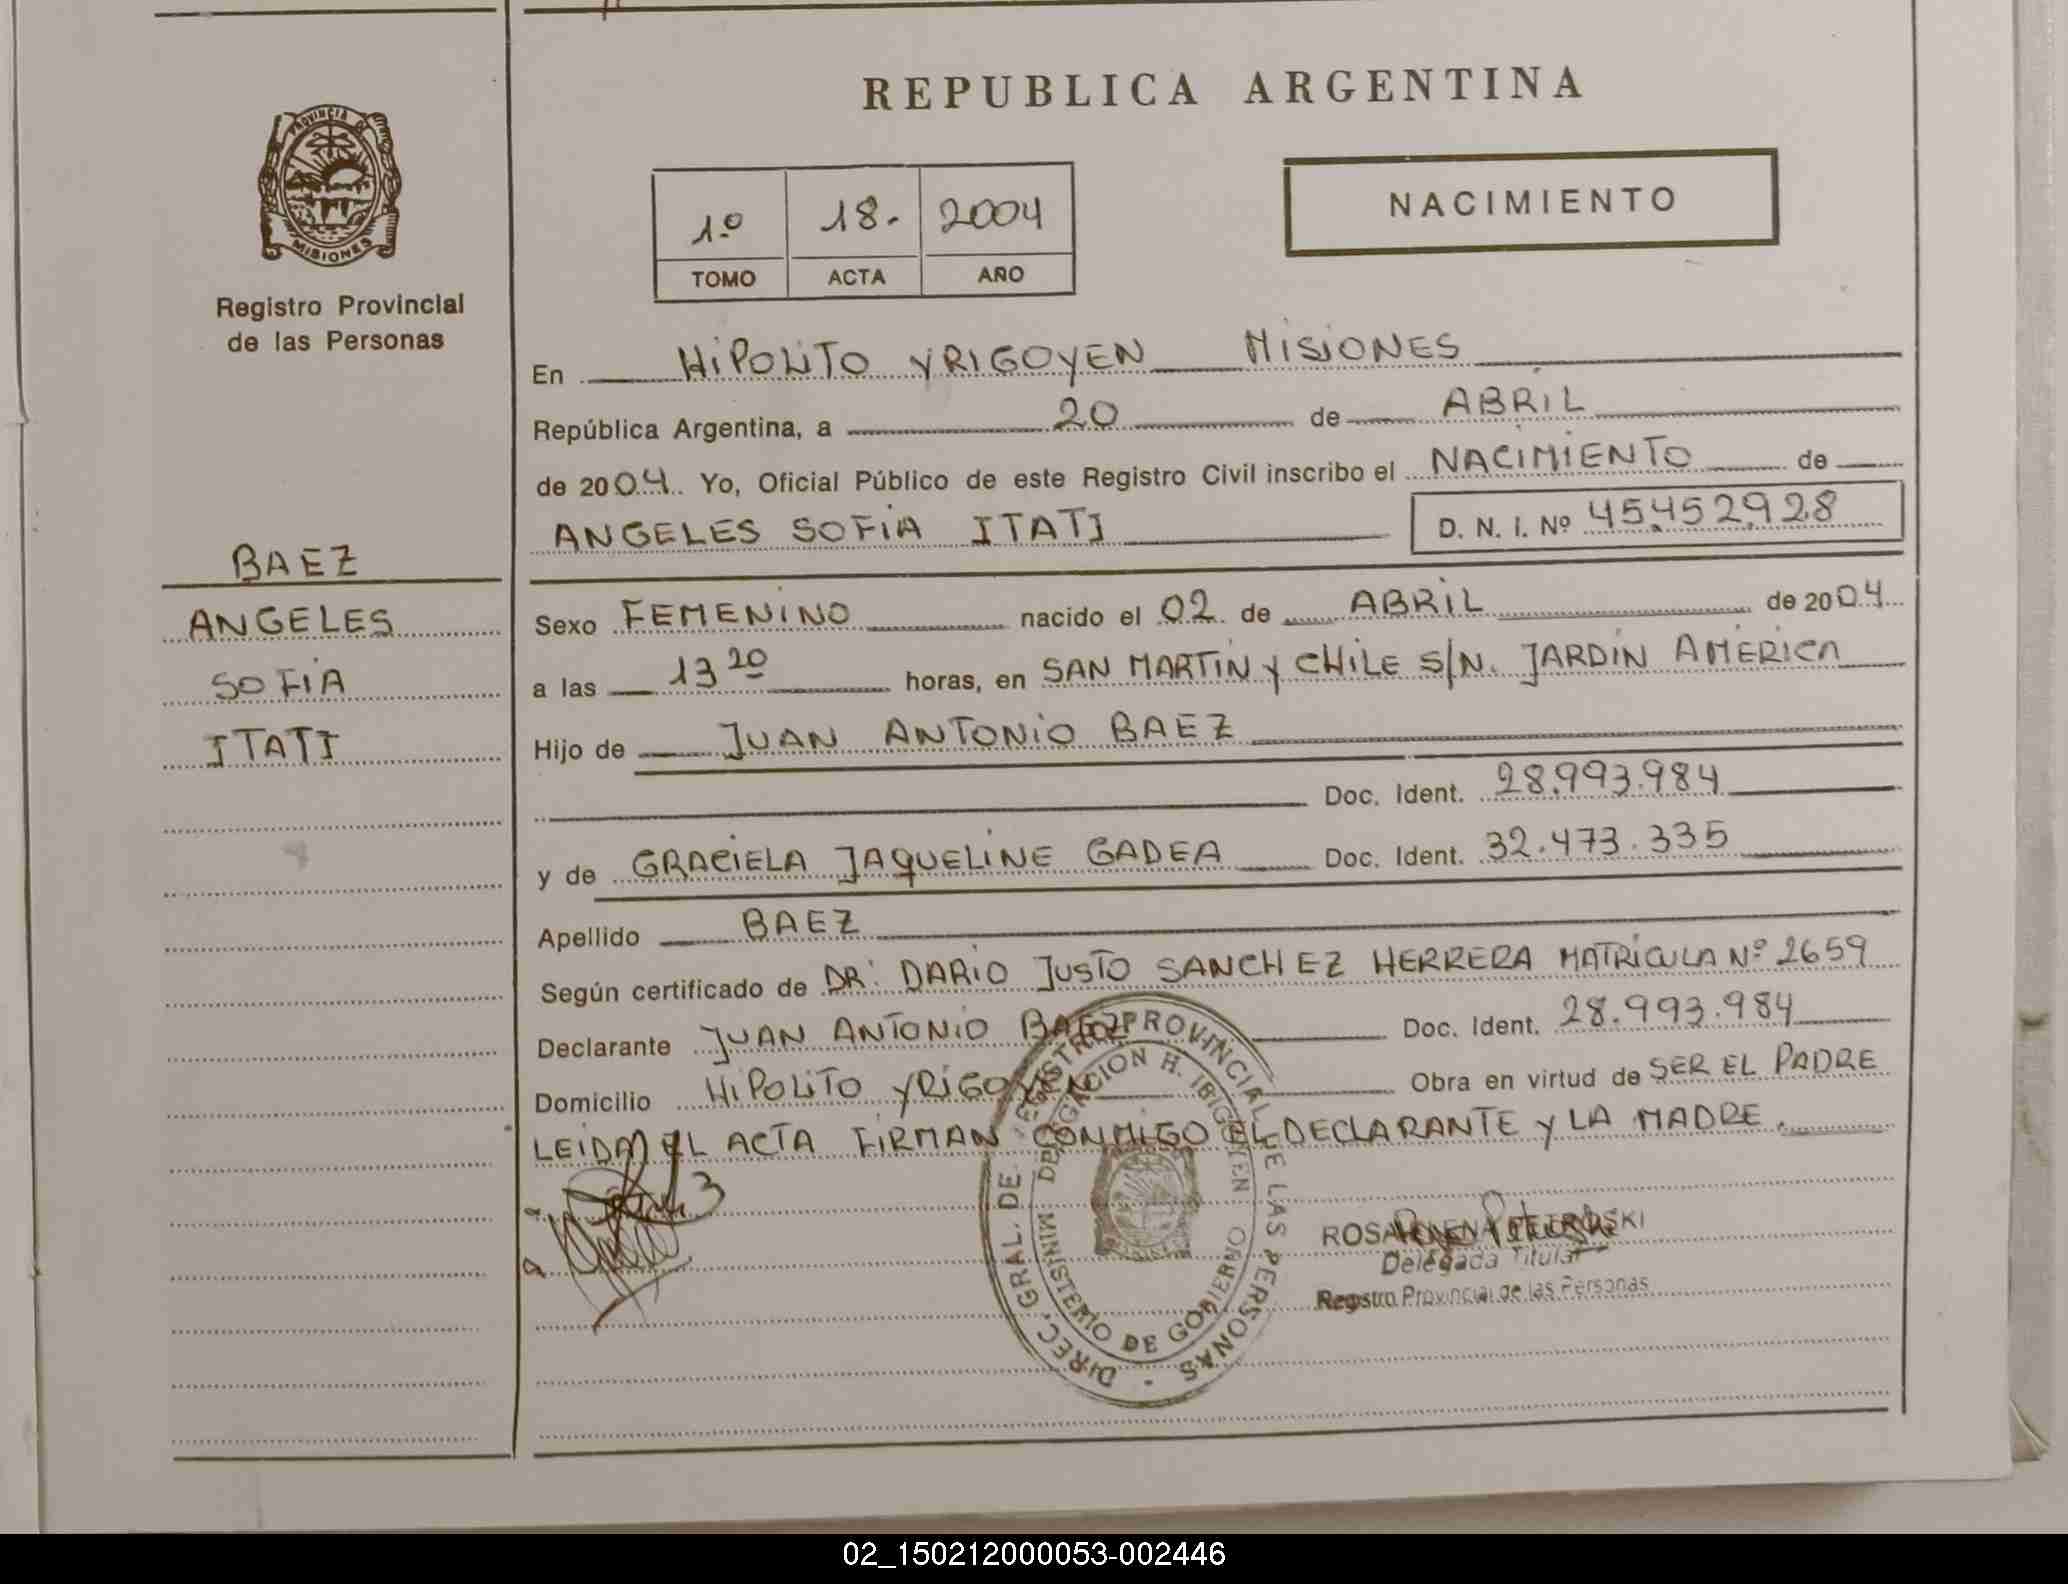 REPUBLICA ARGENTINA
PROVINCIA DE
MISIONES
Registro Provincial
de las Personas
1.º 18. 2004
TOMO ACTA AÑO
NACIMIENTO
En HIPOLITO YRIGOYEN MISIONES
República Argentina, a 20 de ABRIL
de 2004. Yo, Oficial Público de este Registro Civil inscribo el NACIMIENTO de
ANGELES SOFIA ITATI D. N. I. Nº 45.452.928
BAEZ
ANGELES
SOFIA
ITATI
Sexo FEMENINO nacido el 02 de ABRIL de 2004
a las 13 20 horas, en SAN MARTIN Y CHILE S/N. JARDIN AMERICA
Hijo de JUAN ANTONIO BAEZ
Doc. Ident. 28.993.984
y de GRACIELA JAQUELINE GADEA Doc. Ident. 32.473.335
Apellido BAEZ
Según certificado de DR. DARIO JUSTO SANCHEZ HERRERA MATRICULA Nº 2659
Declarante JUAN ANTONIO BAEZ Doc. Ident. 28.993.984
Domicilio HIPOLITO YRIGOYEN Obra en virtud de SER EL PADRE
LEIDA EL ACTA FIRMAN CONMIGO EL DECLARANTE Y LA MADRE.
DIREC. GRAL. DE REGISTRO PROVINCIAL DE LAS PERSONAS
DELEGACION H. IRIGOYEN
MINISTERIO DE GOBIERNO
Delegada Titular
Registro Provincial de las Personas
02_150212000053-002446